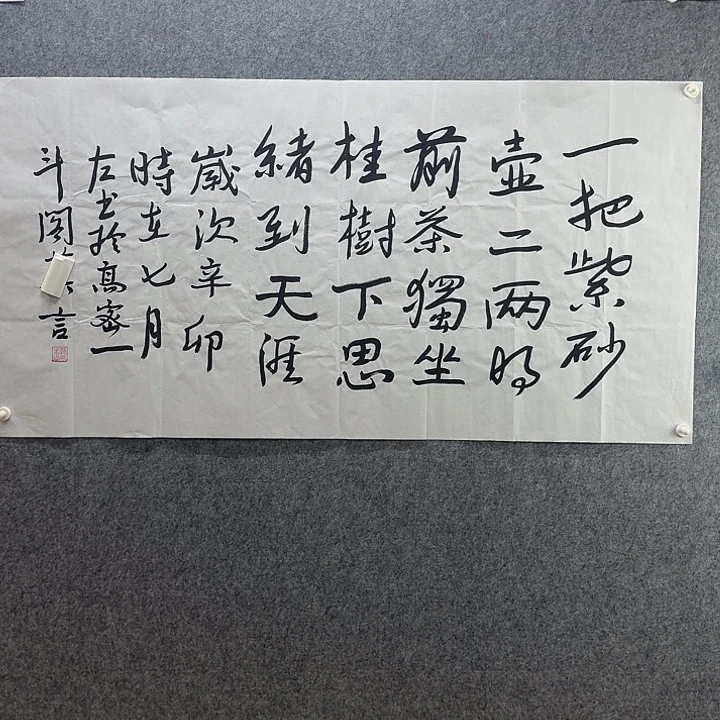 一把紫砂
壶二两明
前茶獨坐
桂樹下思
緒到天涯
歲次辛卯
時在七月
左书於高密一
斗阁 言